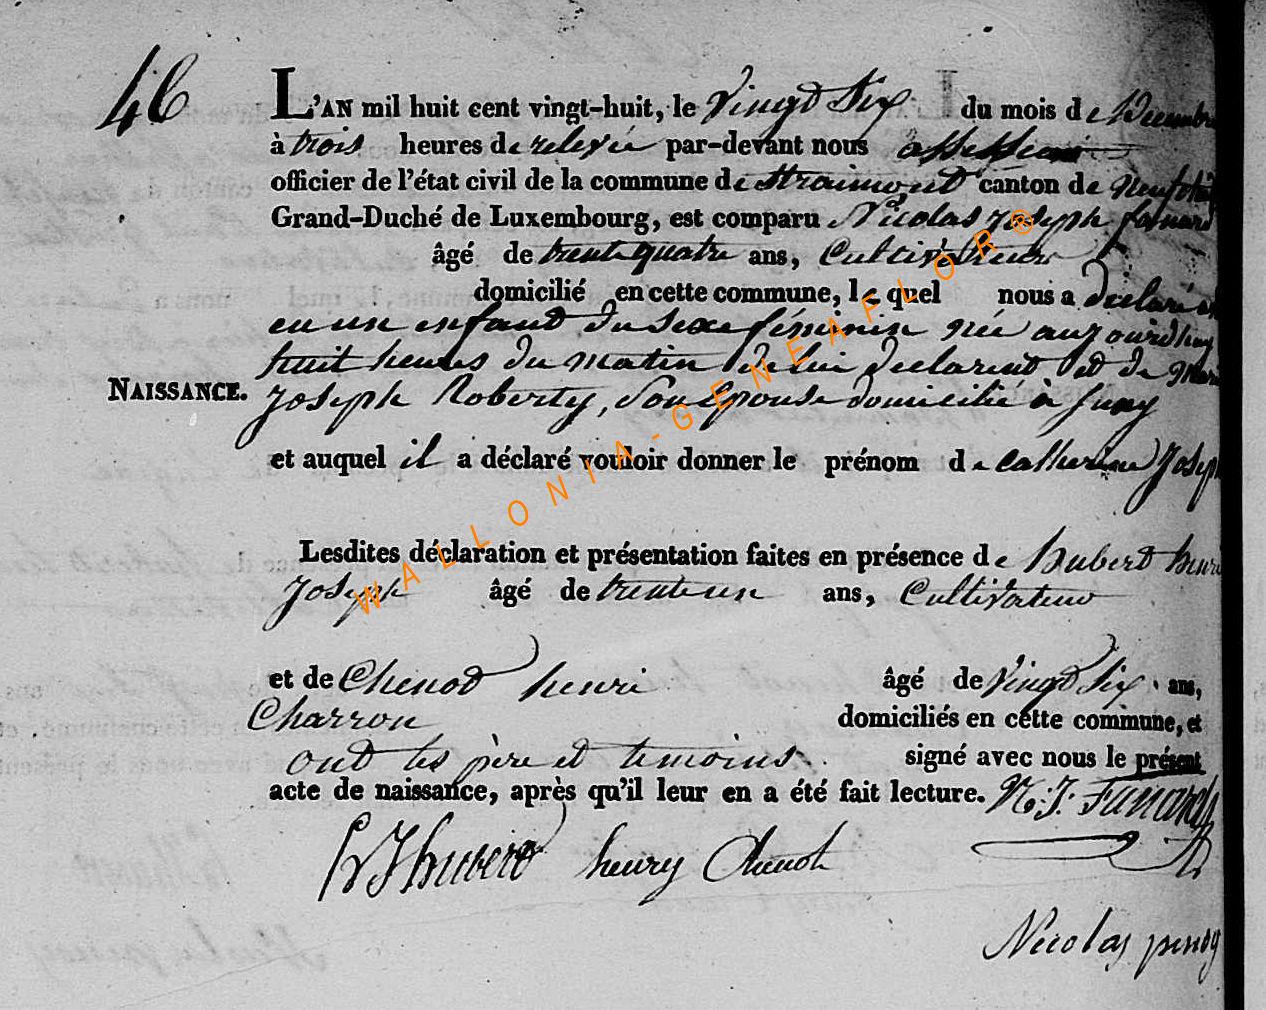 46
L'AN mil huit cent vingt-huit, le vingt Six du mois de Decembre
à trois heures de relevée par-devant nous assesseur
officier de l'état civil de la commune de Straimont canton de neufchât
Grand-Duché de Luxembourg, est comparu Nicolas joseph fanard
âgé de trente quatre ans, Cultivateur
domicilié en cette commune, lequel nous a declaré
eu un enfant du sexe féminin née aujourdhuy
huit heures du matin de lui declarent et de Marie
NAISSANCE. Joseph Roberty, Son Epouse domicilié à Suxy
et auquel il a déclaré vouloir donner le prénom de catherine Joseph
Lesdites déclaration et présentation faites en présence de hubert henri
Joseph âgé de trente un ans, Cultivateur
et de Chenod henri âgé de vingt Six ans,
Charron domiciliés en cette commune, et
ont les père et temoins signé avec nous le présent
acte de naissance, après qu'il leur en a été fait lecture. N. J. Fanard
hubert henry Chenot
Nicolas
WALLONIA-GENEAFLOR®